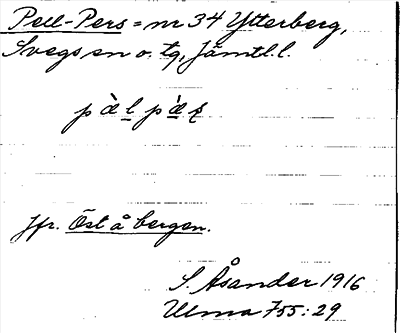 Pell-Pers = nr 34 Ytterberg,
Svegs sn o. tg, Jämtl. l.
pæ̀l pæ̀ʂ
Jfr. Öst å bergen.
S. Åsander 1916
Ulma 755:29